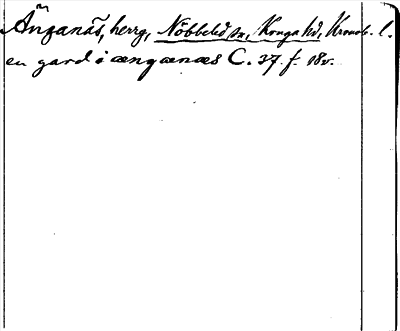 Änganäs, herrg, Nöbbeled sn, Konga hd, Kronob. l.
en gard i ængenæs C. 37 f. 18v.